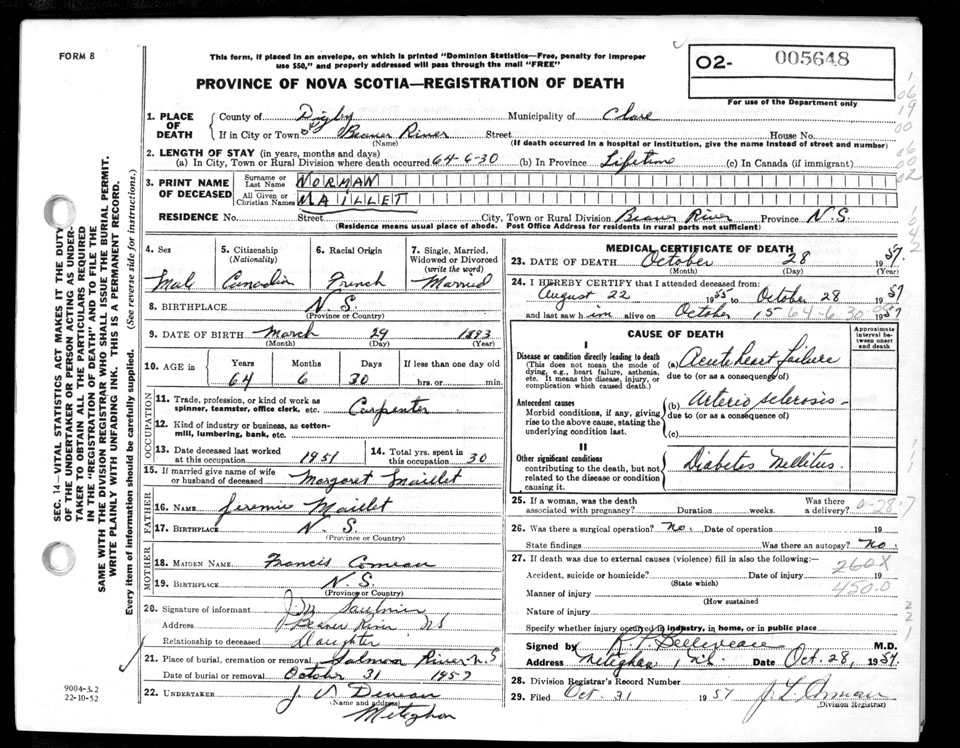 FORM 8
This form, if placed in an envelope, on which is printed "Dominion Statistics—Free, penalty for improper
use $50," and properly addressed will pass through the mail "FREE"
PROVINCE OF NOVA SCOTIA—REGISTRATION OF DEATH
O2- 005648
For use of the Department only
1. PLACE OF DEATH
County of Digby Municipality of Clare
If in City or Town Beaver River Street House No.
(Name) (If death occurred in a hospital or institution, give the name instead of street and number)
2. LENGTH OF STAY (in years, months and days)
(a) In City, Town or Rural Division where death occurred 64-6-30 (b) In Province Lifetime (c) In Canada (if immigrant)
3. PRINT NAME OF DECEASED
Surname or Last Name NORMAN
All Given or Christian Names MAILLET
RESIDENCE No. Street City, Town or Rural Division Beaver River Province N.S.
(Residence means usual place of abode. Post Office Address for residents in rural parts not sufficient)
4. Sex Male
5. Citizenship (Nationality) Canadian
6. Racial Origin French
7. Single, Married, Widowed or Divorced (write the word) Married
8. BIRTHPLACE N.S.
(Province or Country)
9. DATE OF BIRTH March 29 1893
(Month) (Day) (Year)
10. AGE in Years Months Days If less than one day old
64 6 30 hrs. or min.
OCCUPATION
11. Trade, profession, or kind of work as
spinner, teamster, office clerk, etc. Carpenter
12. Kind of industry or business, as cotton-
mill, lumbering, bank, etc.
13. Date deceased last worked at this occupation 1951
14. Total yrs. spent in this occupation 30
15. If married give name of wife
or husband of deceased Margaret Maillet
FATHER
16. NAME Jeremie Maillet
17. BIRTHPLACE N.S.
(Province or Country)
MOTHER
18. MAIDEN NAME Francis Comeau
19. BIRTHPLACE N.S.
(Province or Country)
20. Signature of informant Saulnier
Address Beaver River NS
Relationship to deceased Daughter
21. Place of burial, cremation or removal Salmon River N.S
Date of burial or removal October 31 1957
22. UNDERTAKER J V Deveau
(Name and address)
Meteghan
MEDICAL CERTIFICATE OF DEATH
23. DATE OF DEATH October 28 1957.
(Month) (Day) (Year)
24. I HEREBY CERTIFY that I attended deceased from:
August 22 1955 to October 28 1957
and last saw him alive on October 15 64-6-30 1957
CAUSE OF DEATH
Approximate interval between onset and death
I
Disease or condition directly leading to death
(This does not mean the mode of
dying, e.g., heart failure, asthenia,
etc. It means the disease, injury, or
complication which caused death.)
(a) Acute heart failure
due to (or as a consequence of)
Antecedent causes
Morbid conditions, if any, giving
rise to the above cause, stating the
underlying condition last.
(b) Arterio sclerosis -
due to (or as a consequence of)
(c)
II
Other significant conditions
contributing to the death, but not
related to the disease or condition
causing it.
Diabetes Mellitus.
25. If a woman, was the death Was there
associated with pregnancy? Duration weeks. a delivery?
26. Was there a surgical operation? No. Date of operation 19
State findings Was there an autopsy? No.
27. If death was due to external causes (violence) fill in also the following:—
Accident, suicide or homicide? Date of injury 19
(State which)
260X
Manner of injury 450.0
(How sustained
Nature of injury
Specify whether injury occurred in industry, in home, or in public place
Signed by Belliveau M.D.
Address Meteghan, N.S. Date Oct. 28, 1957.
28. Division Registrar's Record No.
29. Filed Oct. 31 1957
(Division Registrar)
SEC. 14—VITAL STATISTICS ACT MAKES IT THE DUTY
OF THE UNDERTAKER OR PERSON ACTING AS UNDER-
TAKER TO OBTAIN ALL THE PARTICULARS REQUIRED
IN THE "REGISTRATION OF DEATH" AND TO FILE THE
SAME WITH THE DIVISION REGISTRAR WHO SHALL ISSUE THE BURIAL PERMIT.
WRITE PLAINLY WITH UNFADING INK. THIS IS A PERMANENT RECORD.
Every item of information should be carefully supplied. (See reverse side for instructions.)
9004-3.2
22-10-52